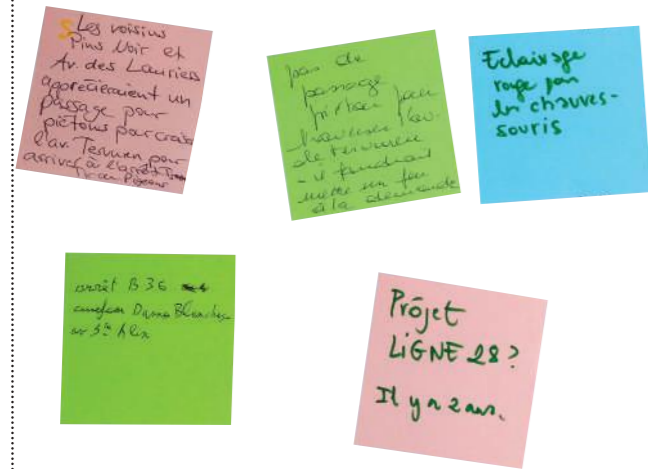 S Les voisins
Pins Noir et
Av. des Lauriers
apprécieraient un
passage pour
piétons pour croiser
l'av. Tervuren pour
arriver à l'arrêt Tram
pas de
passage
piéton pour
traverser l'av.
de tervuren
- il faudrait
mettre un feu
à la demande
Eclairage
rouge pour
les chauves-
souris
arrêt B 36
carrefour Dames Blanches
av
Projet
LiGNE 28?
Il y a 2 ans.